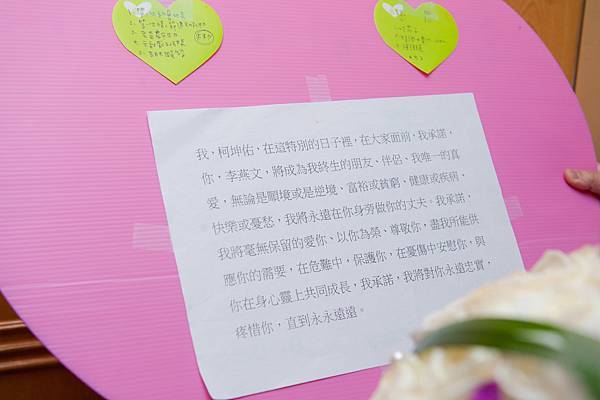 我，柯坤佑，在這特別的日子裡，在大家面前，我承諾，
你，李燕文，將成為我終生的朋友、伴侶、我唯一的真
愛，無論是順境或是逆境、富裕或貧窮、健康或疾病、
快樂或憂愁，我將永遠在你身旁做你的丈夫。我承諾，
我將毫無保留的愛你、以你為榮、尊敬你，盡我所能供
應你的需要，在危難中，保護你，在憂傷中安慰你，與
你在身心靈上共同成長，我承諾，我將對你永遠忠實，
疼惜你，直到永永遠遠。